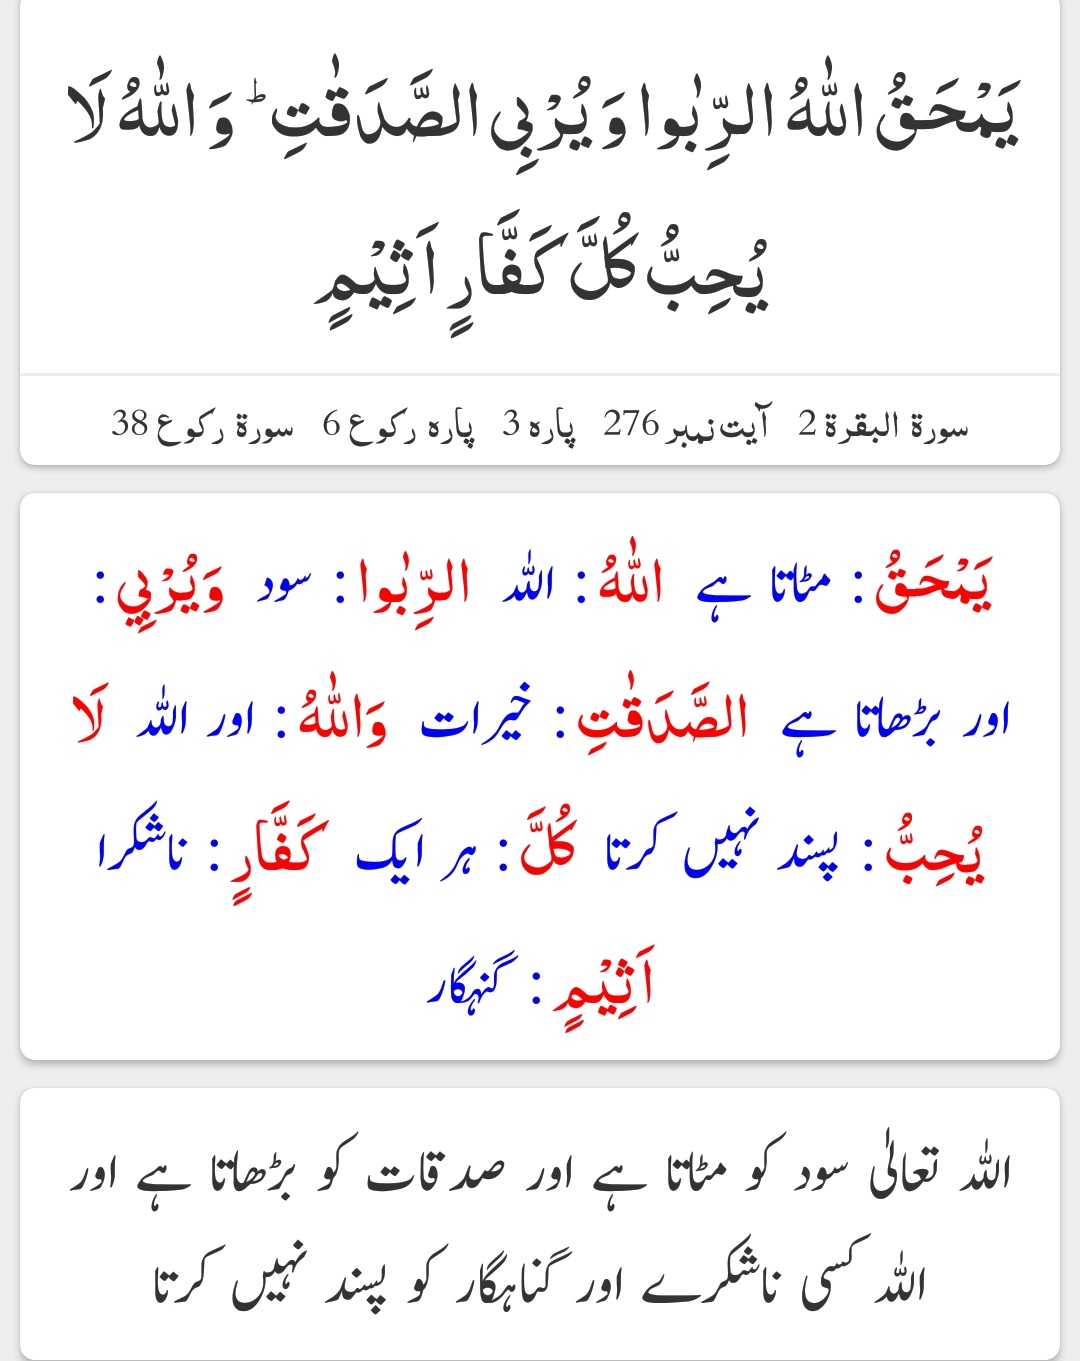 يَمْحَقُ اللّٰهُ الرِّبٰوا وَ يُرْبِي الصَّدَقٰتِ ؕ وَ اللّٰهُ لَا
يُحِبُّ كُلَّ كَفَّارٍ اَثِيْمٍ
سورۃ البقرۃ 2 آیت نمبر 276 پارہ 3 پارہ رکوع 6 سورۃ رکوع 38
يَمْحَقُ : مٹاتا ہے اللّٰهُ : اللہ الرِّبٰوا : سود وَيُرْبِي :
اور بڑھاتا ہے الصَّدَقٰتِ : خیرات وَاللّٰهُ : اور اللہ لَا
يُحِبُّ : پسند نہیں کرتا كُلَّ : ہر ایک كَفَّارٍ : ناشکرا
اَثِيْمٍ : گنہگار
اللہ تعالٰی سود کو مٹاتا ہے اور صدقات کو بڑھاتا ہے اور
اللہ کسی ناشکرے اور گناہگار کو پسند نہیں کرتا